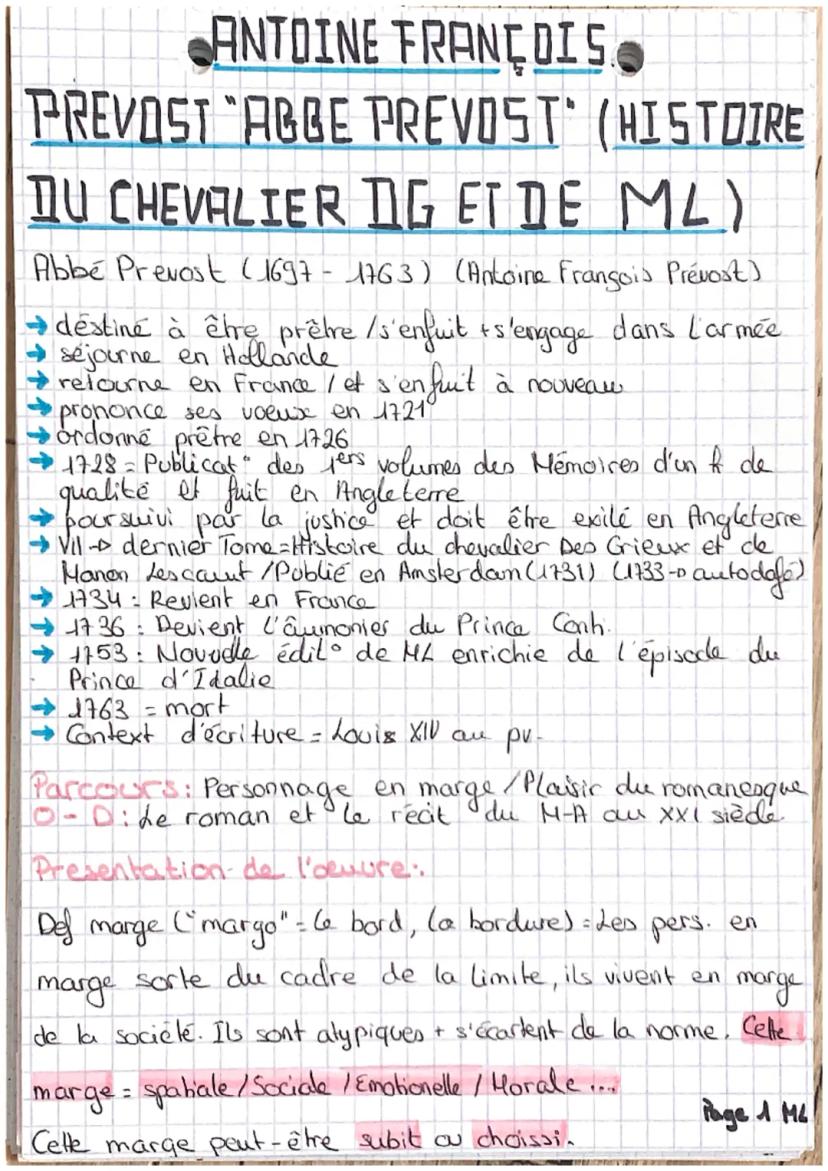 ANTOINE FRANÇOIS
PREVOST "ABBE PREVOST" (HISTOIRE
DU CHEVALIER DG ET DE ML)
Abbé Prevost (1697 - 1763) (Antoine François Prévost)
→ déstiné à être prêtre / s'enfuit + s'engage dans l'armée
→ séjourne en Hollande
→ retourne en France / et s'enfuit à nouveau
→ prononce ses voeux en 1721
→ ordonné prêtre en 1726
→ 1728 = Publicat° des 1ers volumes des Mémoires d'un h de
qualité et fuit en Angleterre
→ poursuivi par la justice et doit être exilé en Angleterre
→ VII → dernier Tome = Histoire du chevalier Des Grieux et de
Manon Lescaut / Publié en Amsterdam (1731) (1733 → autodafé)
→ 1734 : Revient en France
→ 1736 : Devient l'âumonier du Prince Conh.
→ 1753 : Nouvelle édit° de ML enrichie de l'épisode du
Prince d'Idalie
→ 1763 = mort
→ Context d'écriture = Louis XIV au pv.
Parcours : Personnage en marge / Plaisir du romanesque
O - D : Le roman et le récit du M-A au XXI siècle
Presentation de l'oeuvre :
Def marge ("margo" = le bord, la bordure) = Les pers. en
marge sorte du cadre de la limite, ils vivent en marge
de la société. Ils sont atypiques + s'écartent de la norme. Cette
marge = spatiale / Sociale / Emotionelle / Morale ...
Page 1 ML
Cette marge peut-être subit ou choissi.